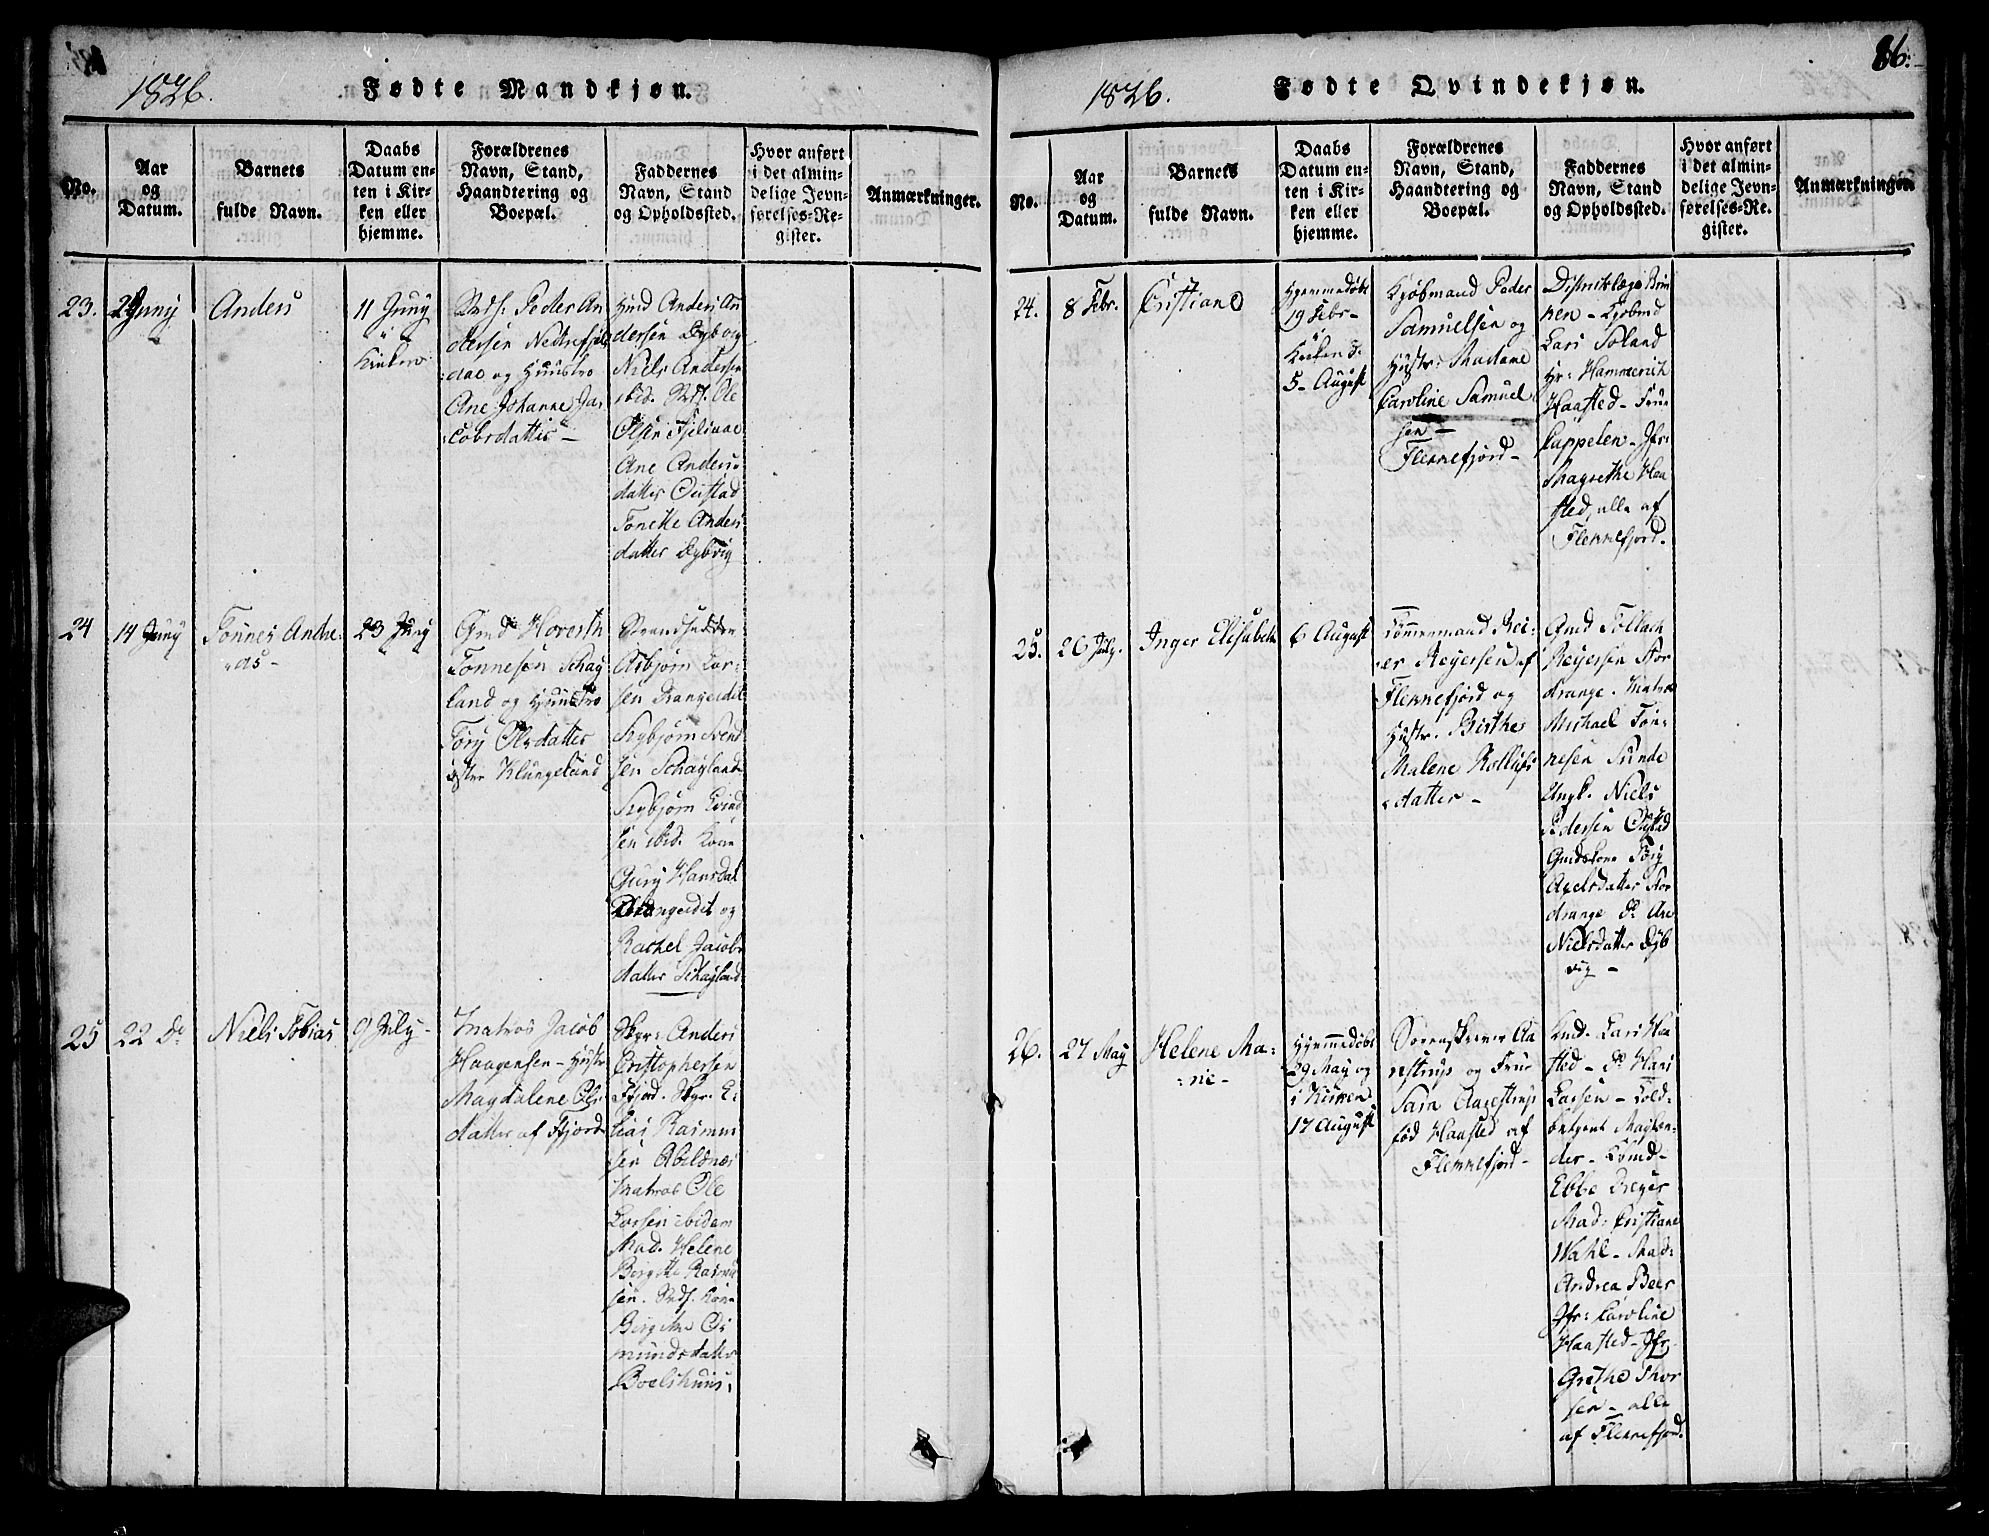 1826.
Fødte Mandkjøn.
No.
Aar
og
Datum.
Barnets
fulde Navn.
Daabs
Datum en-
ten i Kir-
ken eller
hjemme.
Forældrenes
Navn, Stand,
Haandtering og
Boepæl.
Faddernes
Navn, Stand
og Opholdssted.
Hvor anført
i det almin-
delige Jevn-
førelses-Re-
gister.
Anmærkninger.
23.
Juny
Anders
11 Juny
Kirken
Peder An
dersen
og Huustro
Ane Johanne Ja
cobsdatter
Anders An
dersen Dybvig
Niels Andersen
ibid. Ole
Olsen
Ane Anders
datter Oustad
Tonette Anders
datter Dybvig
24
14 Juny
Tønnes Andre
as
23 Juny
Gmd Hoverth
Tønnesøn Schag
land og Huustro
Tory Olsdatter
Klungeland
Strandsidder
Asbjørn Lar-
sen Drangeidet
Sigbjørn Svend
sen Schagland
Sigbjørn Eivind
sen ibid. Kone
Gury Hansdat
Drangeidet og
Rachel Jacobs
datter Schagland
25
22 Do
Niels Tobias
9 July
Matros Jacob
Haagensen - Hustr
Magdalene Ols
datter af Fjord
Skpr: Anders
Cristophersen
Fjord. Skpr. E-
lias Rasmu
sen Abelsnes
Matros Ole
Larsen ibidem
Mad. Helene
Birgitte Rasmu
sen. Kone
Birgitte Os
mundsdatter
Boelshuus.
86.
1826.
Fødte Qvindekjøn.
No.
Aar
og
Datum.
Barnets
fulde Navn.
Daabs
Datum en-
ten i Kir-
ken eller
hjemme.
Forældrenes
Navn, Stand,
Haandtering og
Boepæl.
Faddernes
Navn, Stand
og Opholdssted.
Hvor anført
i det almin-
delige Jevn-
førelses-Re-
gister.
Anmærkninger.
24.
8 Febr.
Cristiane
Hjemmedøbt
19 Febr-
Kirken d.
5- August
Kjøbmand Peder
Samuelsen og
Hustr: Madame
Caroline Samuel
sen -
Flekkefjord -
Districtlæge
- Kjøbmd
Lars Soland
Hr: Hammerich
Haasted - Frue
Cappelen - Jfr:
Magrethe Haa
sted, alle af
Flekkefjord.
25.
26 July.
Inger Elisabeth
6 August
Tømmermand Rei-
er Reyersen af
Flekkefjord og
Hustr. Birthe
Malene Rollufs
datter -
Gmd Tollach
Reyersen Stor
drange. Matros
Michael Tøn-
nesen Sunde
Ungk. Niels
Pedersen Oustad
Gmdskone Tory
Axelsdatter Stor
drange do Ane
Nielsdatter Dyb
vig -
26.
27 May
Helene Ma-
rie -
Hjemmedøbt
29 May og
i Kirken
17 August
Sorenskriver Aa
restrup og Frue
Sara Aarestrup
fød Haasted af
Flekkefjord -
Kmd. Lars Haa
sted - do Hans
Larsen - Told-
betjent Maylæn-
der - Kbmd -
Ebbe Dreyer
Mad: Cristiane
Wahl - Mad:
Andrea Beer
Jfr: Caroline
Haasted - Jfr
Grethe Thor
sen - alle
af Flekkefjord.